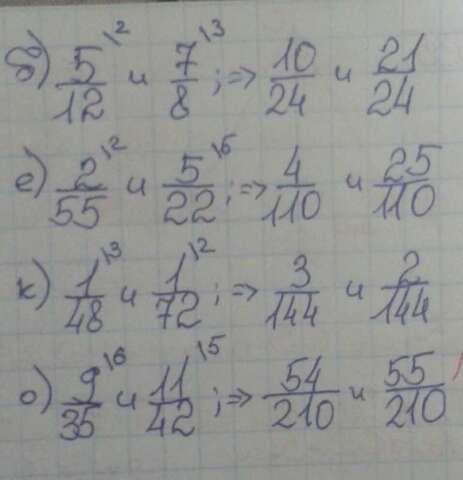 б) 5/12 \2 и 7/8 \3 ; => 10/24 и 21/24
е) 2/55 \2 и 5/22 \5 ; => 4/110 и 25/110
к) 1/48 \3 и 1/72 \2 ; => 3/144 и 2/144
о) 9/35 \6 и 11/42 \5 ; => 54/210 и 55/210